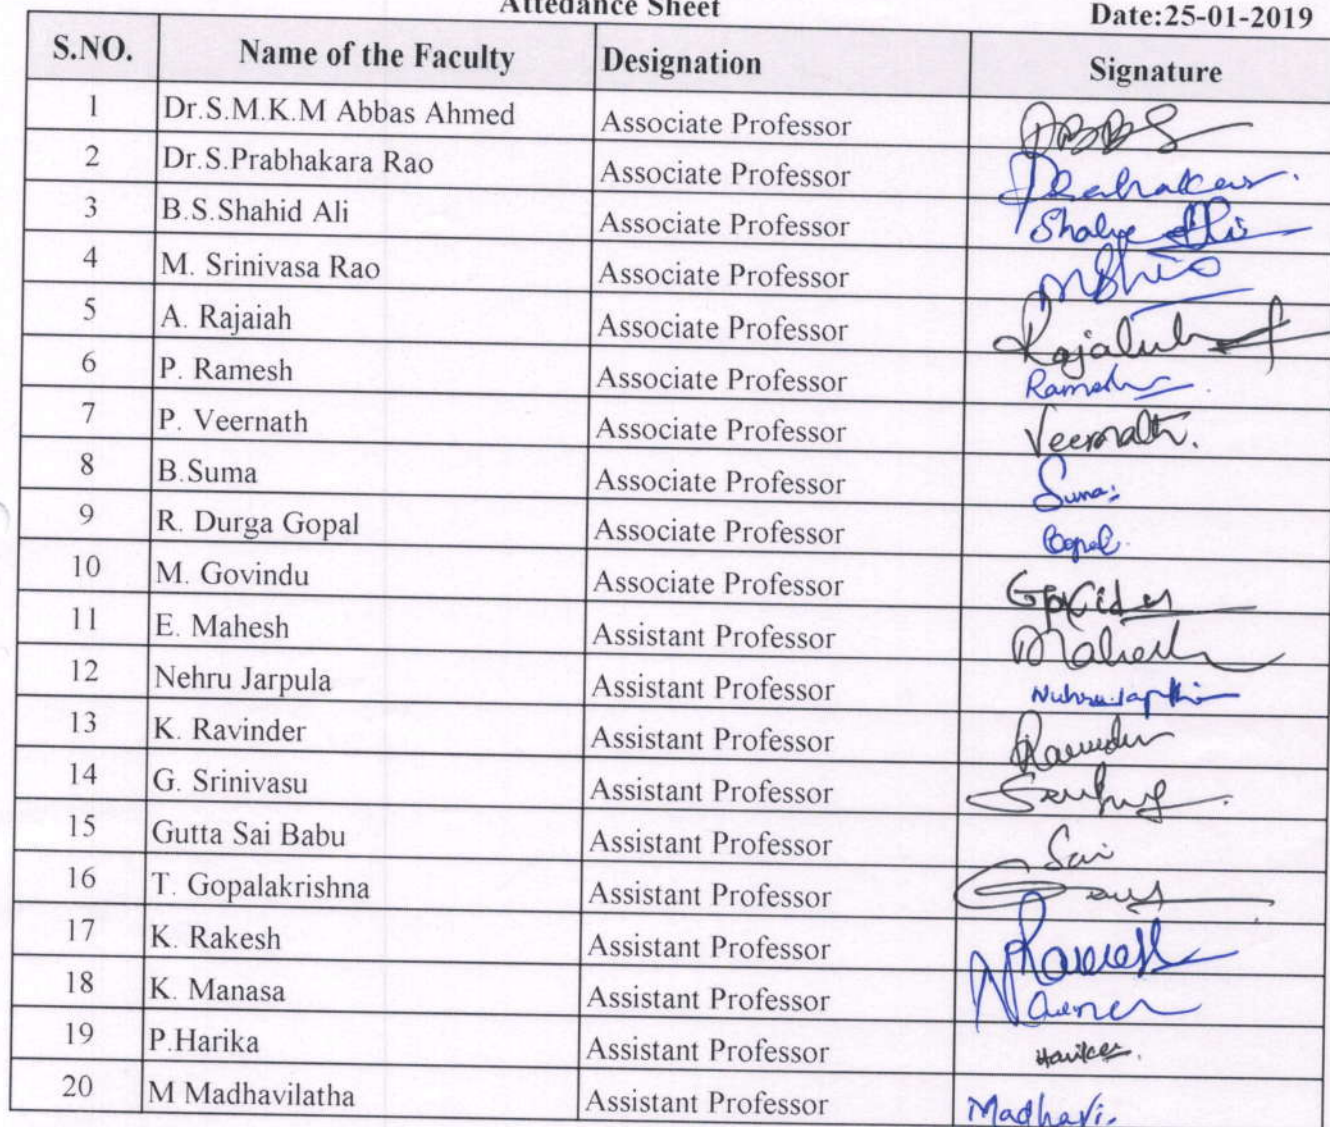 Attedance Sheet
Date:25-01-2019
S.NO. Name of the Faculty Designation Signature
1 Dr.S.M.K.M Abbas Ahmed Associate Professor
2 Dr.S.Prabhakara Rao Associate Professor Prabhakar.
3 B.S.Shahid Ali Associate Professor
4 M. Srinivasa Rao Associate Professor
5 A. Rajaiah Associate Professor
6 P. Ramesh Associate Professor Ramesh
7 P. Veernath Associate Professor Veernath.
8 B.Suma Associate Professor Suma
9 R. Durga Gopal Associate Professor Gopal.
10 M. Govindu Associate Professor
11 E. Mahesh Assistant Professor Mahesh
12 Nehru Jarpula Assistant Professor
13 K. Ravinder Assistant Professor
14 G. Srinivasu Assistant Professor
15 Gutta Sai Babu Assistant Professor Sai
16 T. Gopalakrishna Assistant Professor
17 K. Rakesh Assistant Professor
18 K. Manasa Assistant Professor
19 P.Harika Assistant Professor Harika.
20 M Madhavilatha Assistant Professor Madhavi.